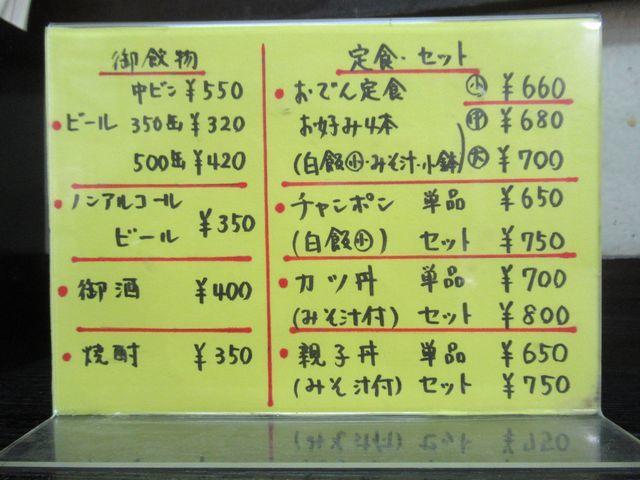 御飲物
中ビン ¥550
ビール 350缶 ¥320
500缶 ¥420
ノンアルコール
ビール ¥350
御酒 ¥400
焼酎 ¥350
定食・セット
おでん定食 小 ¥660
お好み4本 中 ¥680
(白飯小・みそ汁・小鉢) 大 ¥700
チャンポン 単品 ¥650
(白飯小) セット ¥750
カツ丼 単品 ¥700
(みそ汁付) セット ¥800
親子丼 単品 ¥650
(みそ汁付) セット ¥750